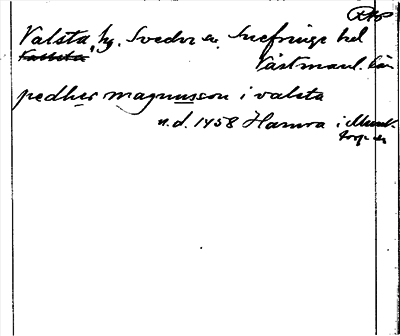 Valsta, hg. Svedvi sn. Snefringe hd
Västmanl. län
pedher magnusson i valsta
n.d. 1458 Hamra i Munk-
torp sn